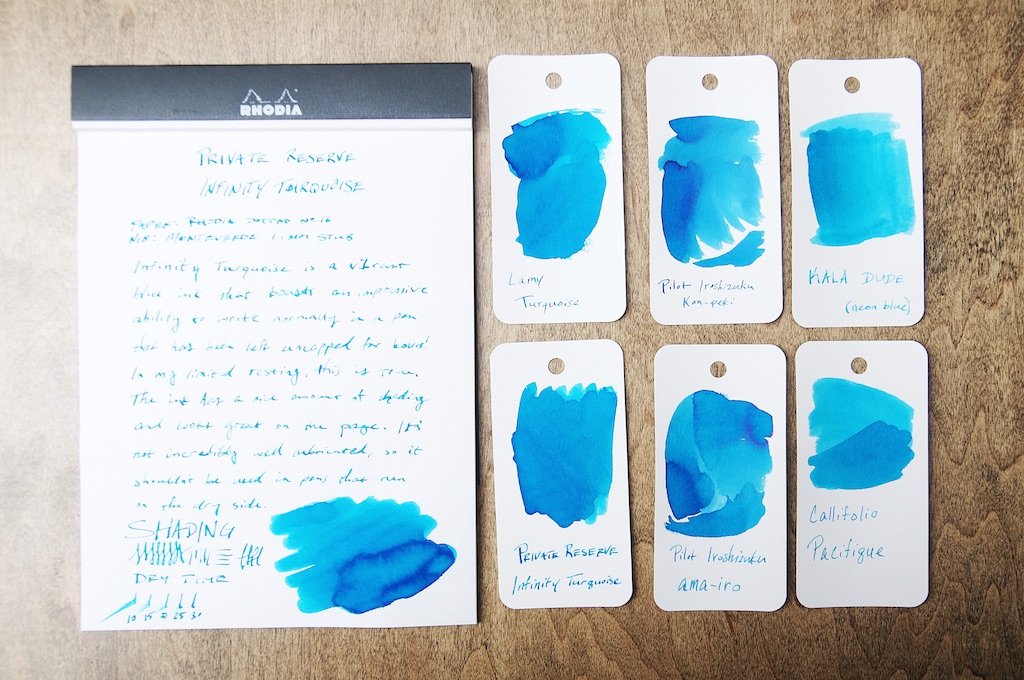 RHODIA
PRIVATE RESERVE
INFINITY TURQUOISE
PAPER: RHODIA DOTPAD No. 16
NIB: MONTEVERDE 1.1MM STUB
Infinity Turquoise is a vibrant
blue ink that boasts an impressive
ability to write normally in a pen
that has been left uncapped for hours!
In my limited testing, this is true.
The ink has a nice amount of shading
and looks great on the page. It's
not incredibly well lubricated, so it
shouldn't be used in pens that run
on the dry side.
SHADING
DRY TIME
10 15 20 25 30
Lamy
Turquoise
Pilot Iroshizuku
Kon-peki
KALA DUDE
(neon blue)
PRIVATE RESERVE
Infinity Turquoise
Pilot Iroshizuku
ama-iro
Callifolio
Pacifique